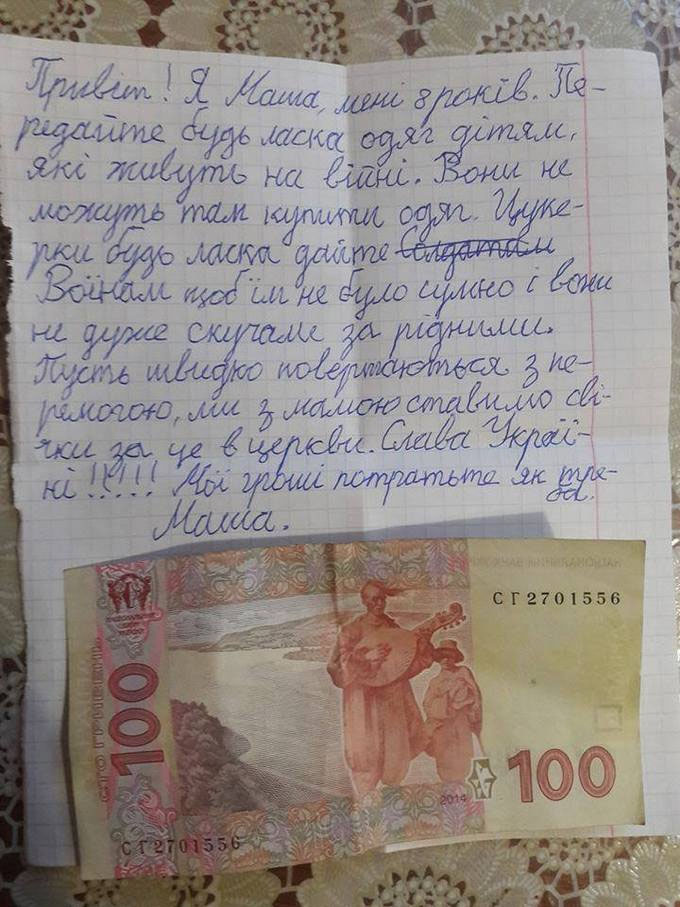 Привіт! Я Маша, мені 8 років. Пе-
редайте будь ласка одяг дітям,
які живуть на війні. Вони не
можуть там купити одяг. Цуке-
рки будь ласка дайте Солдатам
Воїнам щоб їм не було сумно і вони
не дуже скучаме за рідними.
Пусть швидко повертаються з пе-
ремогою, ми з мамою ставимо сві-
чки за це в церкви. Слава Украї-
ні!!!!! Мої гроші потратьте як тре-
ба.
Маша.
НАЦІОНАЛЬНИЙ БАНК
СГ2701556
СТО ГРИВЕНЬ
100
2014
100
СГ2701556